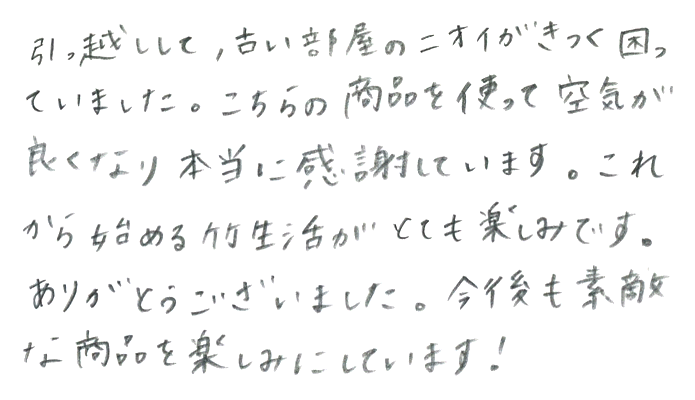 引っ越しして,古い部屋のニオイがきつく困っ
ていました。こちらの商品を使って空気が
良くなり本当に感謝しています。これ
から始める竹生活がとても楽しみです。
ありがとうございました。今後も素敵
な商品を楽しみにしています!